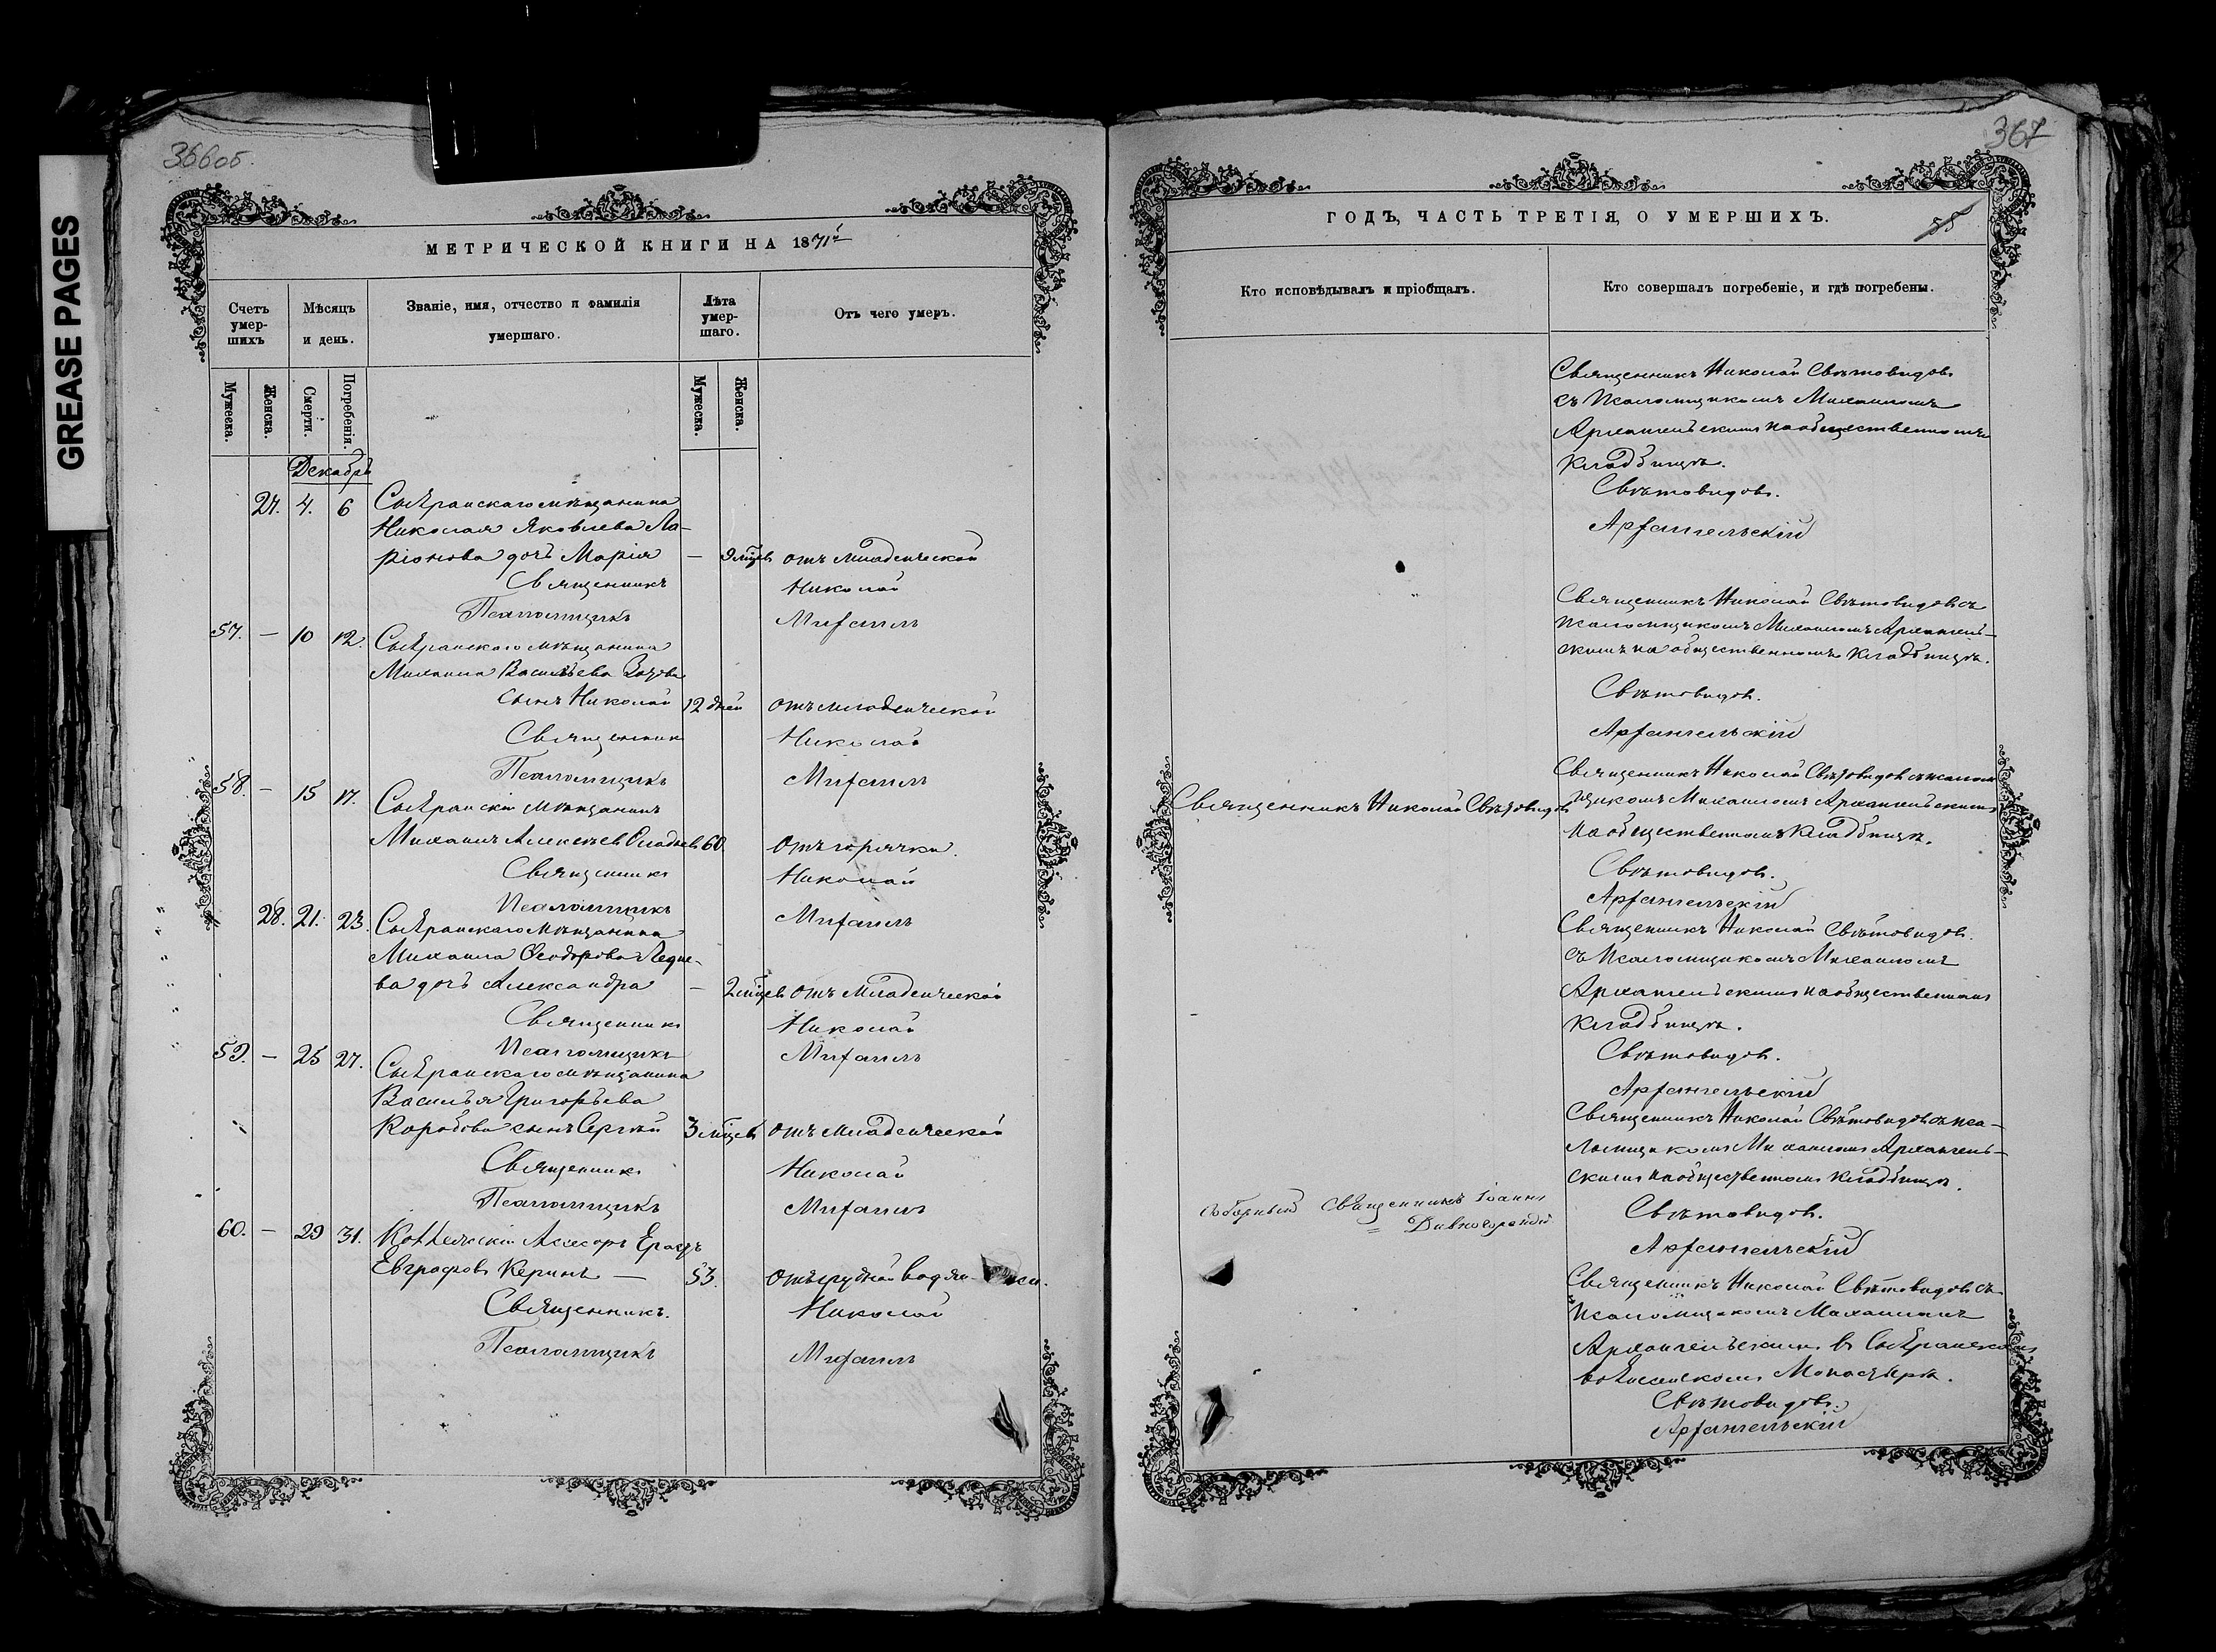 GREASE PAGES
366об.
МЕТРИЧЕСКОЙ КНИГИ НА 1871й
Счетъ умер-шихъ
Мѣсяцъ и день.
Званіе, имя, отчество и фамилія умершаго.
Лѣта умер-шаго.
Отъ чего умеръ.
Мужеска.
Женска.
Смерти.
Погребенія.
Мужеска.
Женска.
Декабрь
27. 4. 6 Сызранскаго мѣщанина
Николая Яковлева Ла-
ріонова дочь Марія — 9 мцевъ отъ младенческой
Священникъ Николай
Псаломщикъ Михаилъ
57. — 10 12. Сызранскаго мѣщанина
Михаила Васильева
сынъ Николай 12 дней отъ младенческой
Священникъ Николай
Псаломщикъ Михаилъ
58. — 15 17. Сызранскій мѣщанинъ
Михаилъ Алексѣевъ 60. отъ горячки.
Священникъ Николай
Псаломщикъ Михаилъ
28. 21. 23. Сызранскаго мѣщанина
Михаила Ѳеодорова
ва дочь Александра — 2 мцевъ отъ младенческой
Священникъ Николай
Псаломщикъ Михаилъ
59. — 25 27. Сызранскаго мѣщанина
Василья Григорьева
Коробова сынъ Сергѣй 3 мцевъ отъ младенческой
Священникъ Николай
Псаломщикъ Михаилъ
60. — 29 31. Коллежскій Ассесоръ
Евграфовъ Керинъ — 53. отъ грудной водян-
Священникъ. Николай
Псаломщикъ Михаилъ
367
ГОДЪ, ЧАСТЬ ТРЕТІЯ, О УМЕРШИХЪ.
55
Кто исповѣдывалъ и пріобщалъ.
Кто совершалъ погребеніе, и гдѣ погребены.
Священникъ Николай Свѣтовидовъ
съ псаломщикомъ Михаиломъ
Архангельскимъ на общественномъ
кладбищѣ.
Свѣтовидовъ.
Архангельскій
Священникъ Николай Свѣтовидовъ съ
псаломщикомъ Михаиломъ Архангель-
скимъ на общественномъ кладбищѣ.
Свѣтовидовъ.
Архангельскій
Священникъ Николай Свѣтовидовъ
Священникъ Николай Свѣтовидовъ съ псалом
щикомъ Михаиломъ Архангельскимъ
на общественномъ кладбищѣ.
Свѣтовидовъ.
Архангельскій
Священникъ Николай Свѣтовидовъ.
съ псаломщикомъ Михаиломъ
Архангельскимъ на общественномъ
кладбищѣ.
Свѣтовидовъ.
Архангельскій
Священникъ Николай Свѣтовидовъ съ пса-
ломщикомъ Михаиломъ Архангель-
скимъ на общественномъ кладбищѣ.
Свѣтовидовъ.
Архангельскій
Соборный Священникъ Іоаннъ
Дивногорскій
Священникъ Николай Свѣтовидовъ съ
псаломщикомъ Михаиломъ
Архангельскимъ въ Сызранскомъ
Монастырѣ.
Свѣтовидовъ.
Архангельскій